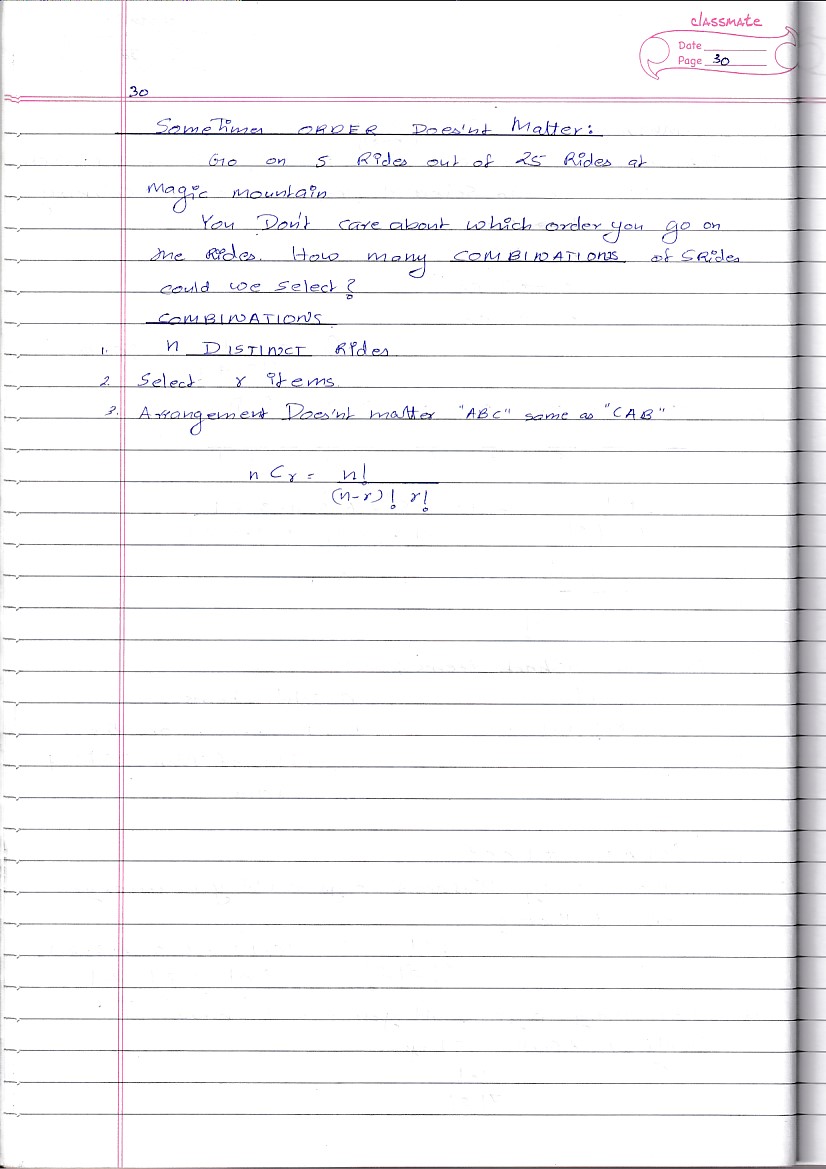 classmate
Date
Page 30
30
SomeTimes ORDER Does'nt Matter:
Go on 5 Rides out of 25 Rides at
Magic mountain
You Don't care about which order you go on
the Rides. How many COMBINATIONS of 5 Rides
could we select?
COMBINATIONS
1. n DISTINCT Rides
2. Select r items.
3. Arrangement Does'nt matter "ABC" same as "CAB"
n Cr = n!
(n-r)! r!